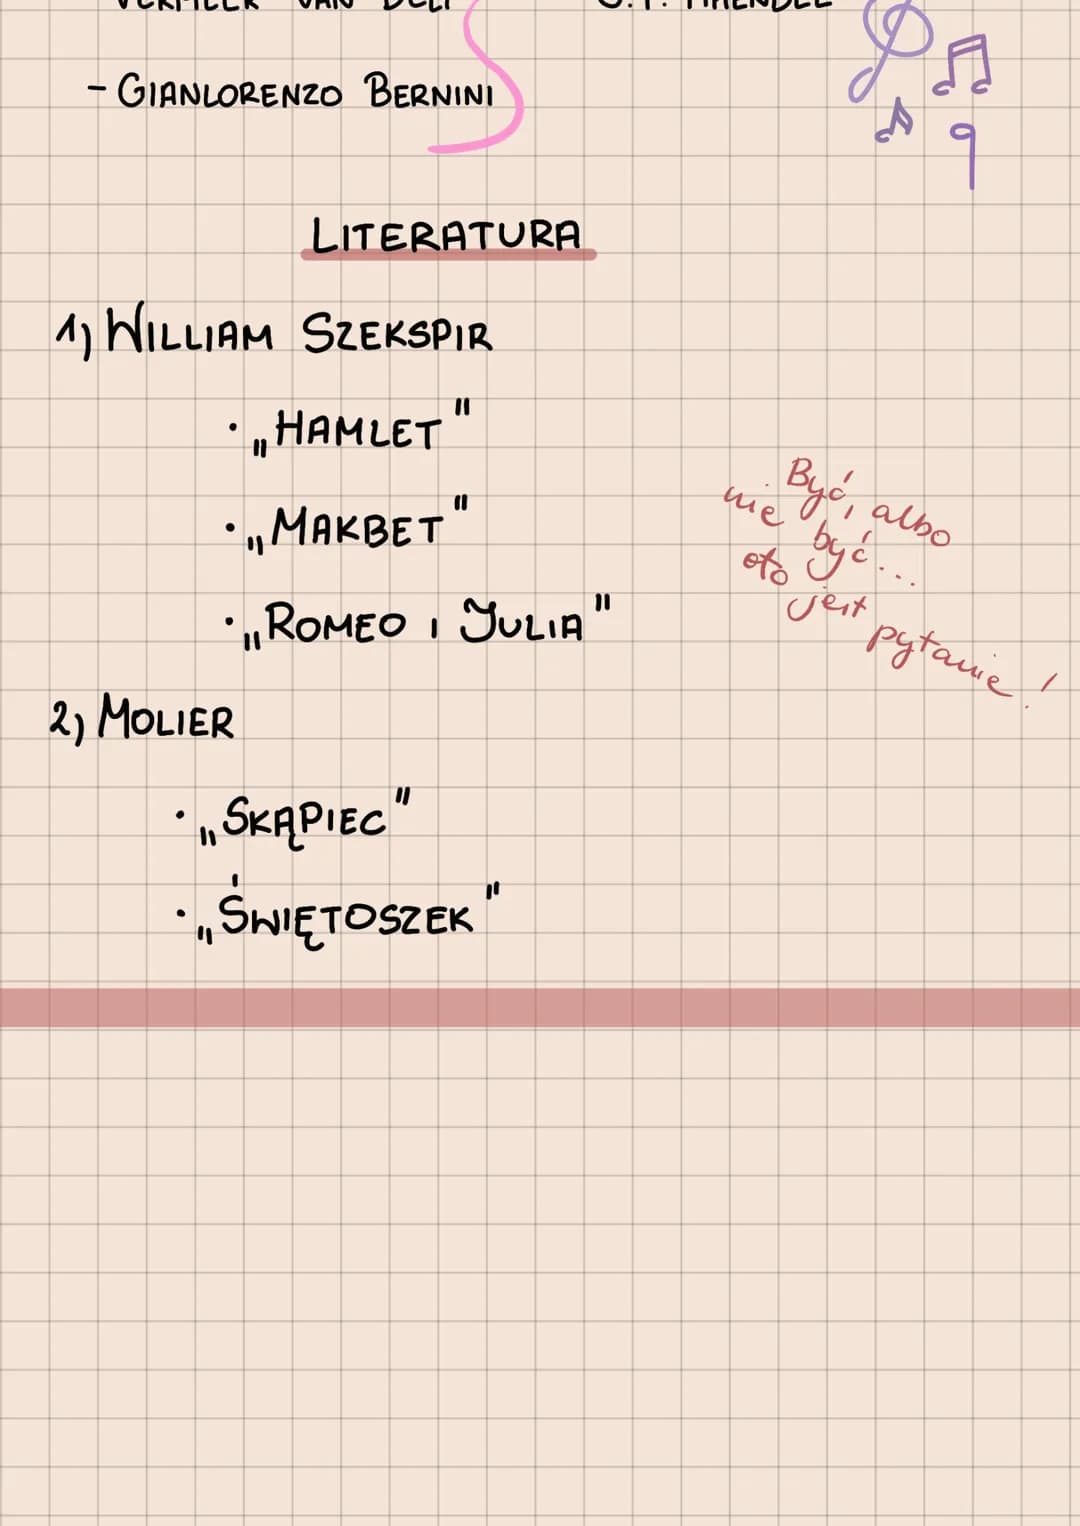 - GIANLORENZO BERNINI
LITERATURA
1) WILLIAM SZEKSPIR
• „HAMLET"
• „MAKBET"
• „ROMEO I JULIA"
Być, albo
nie być...
oto jest
pytanie!
2) MOLIER
• „SKĄPIEC"
• „ŚWIĘTOSZEK"